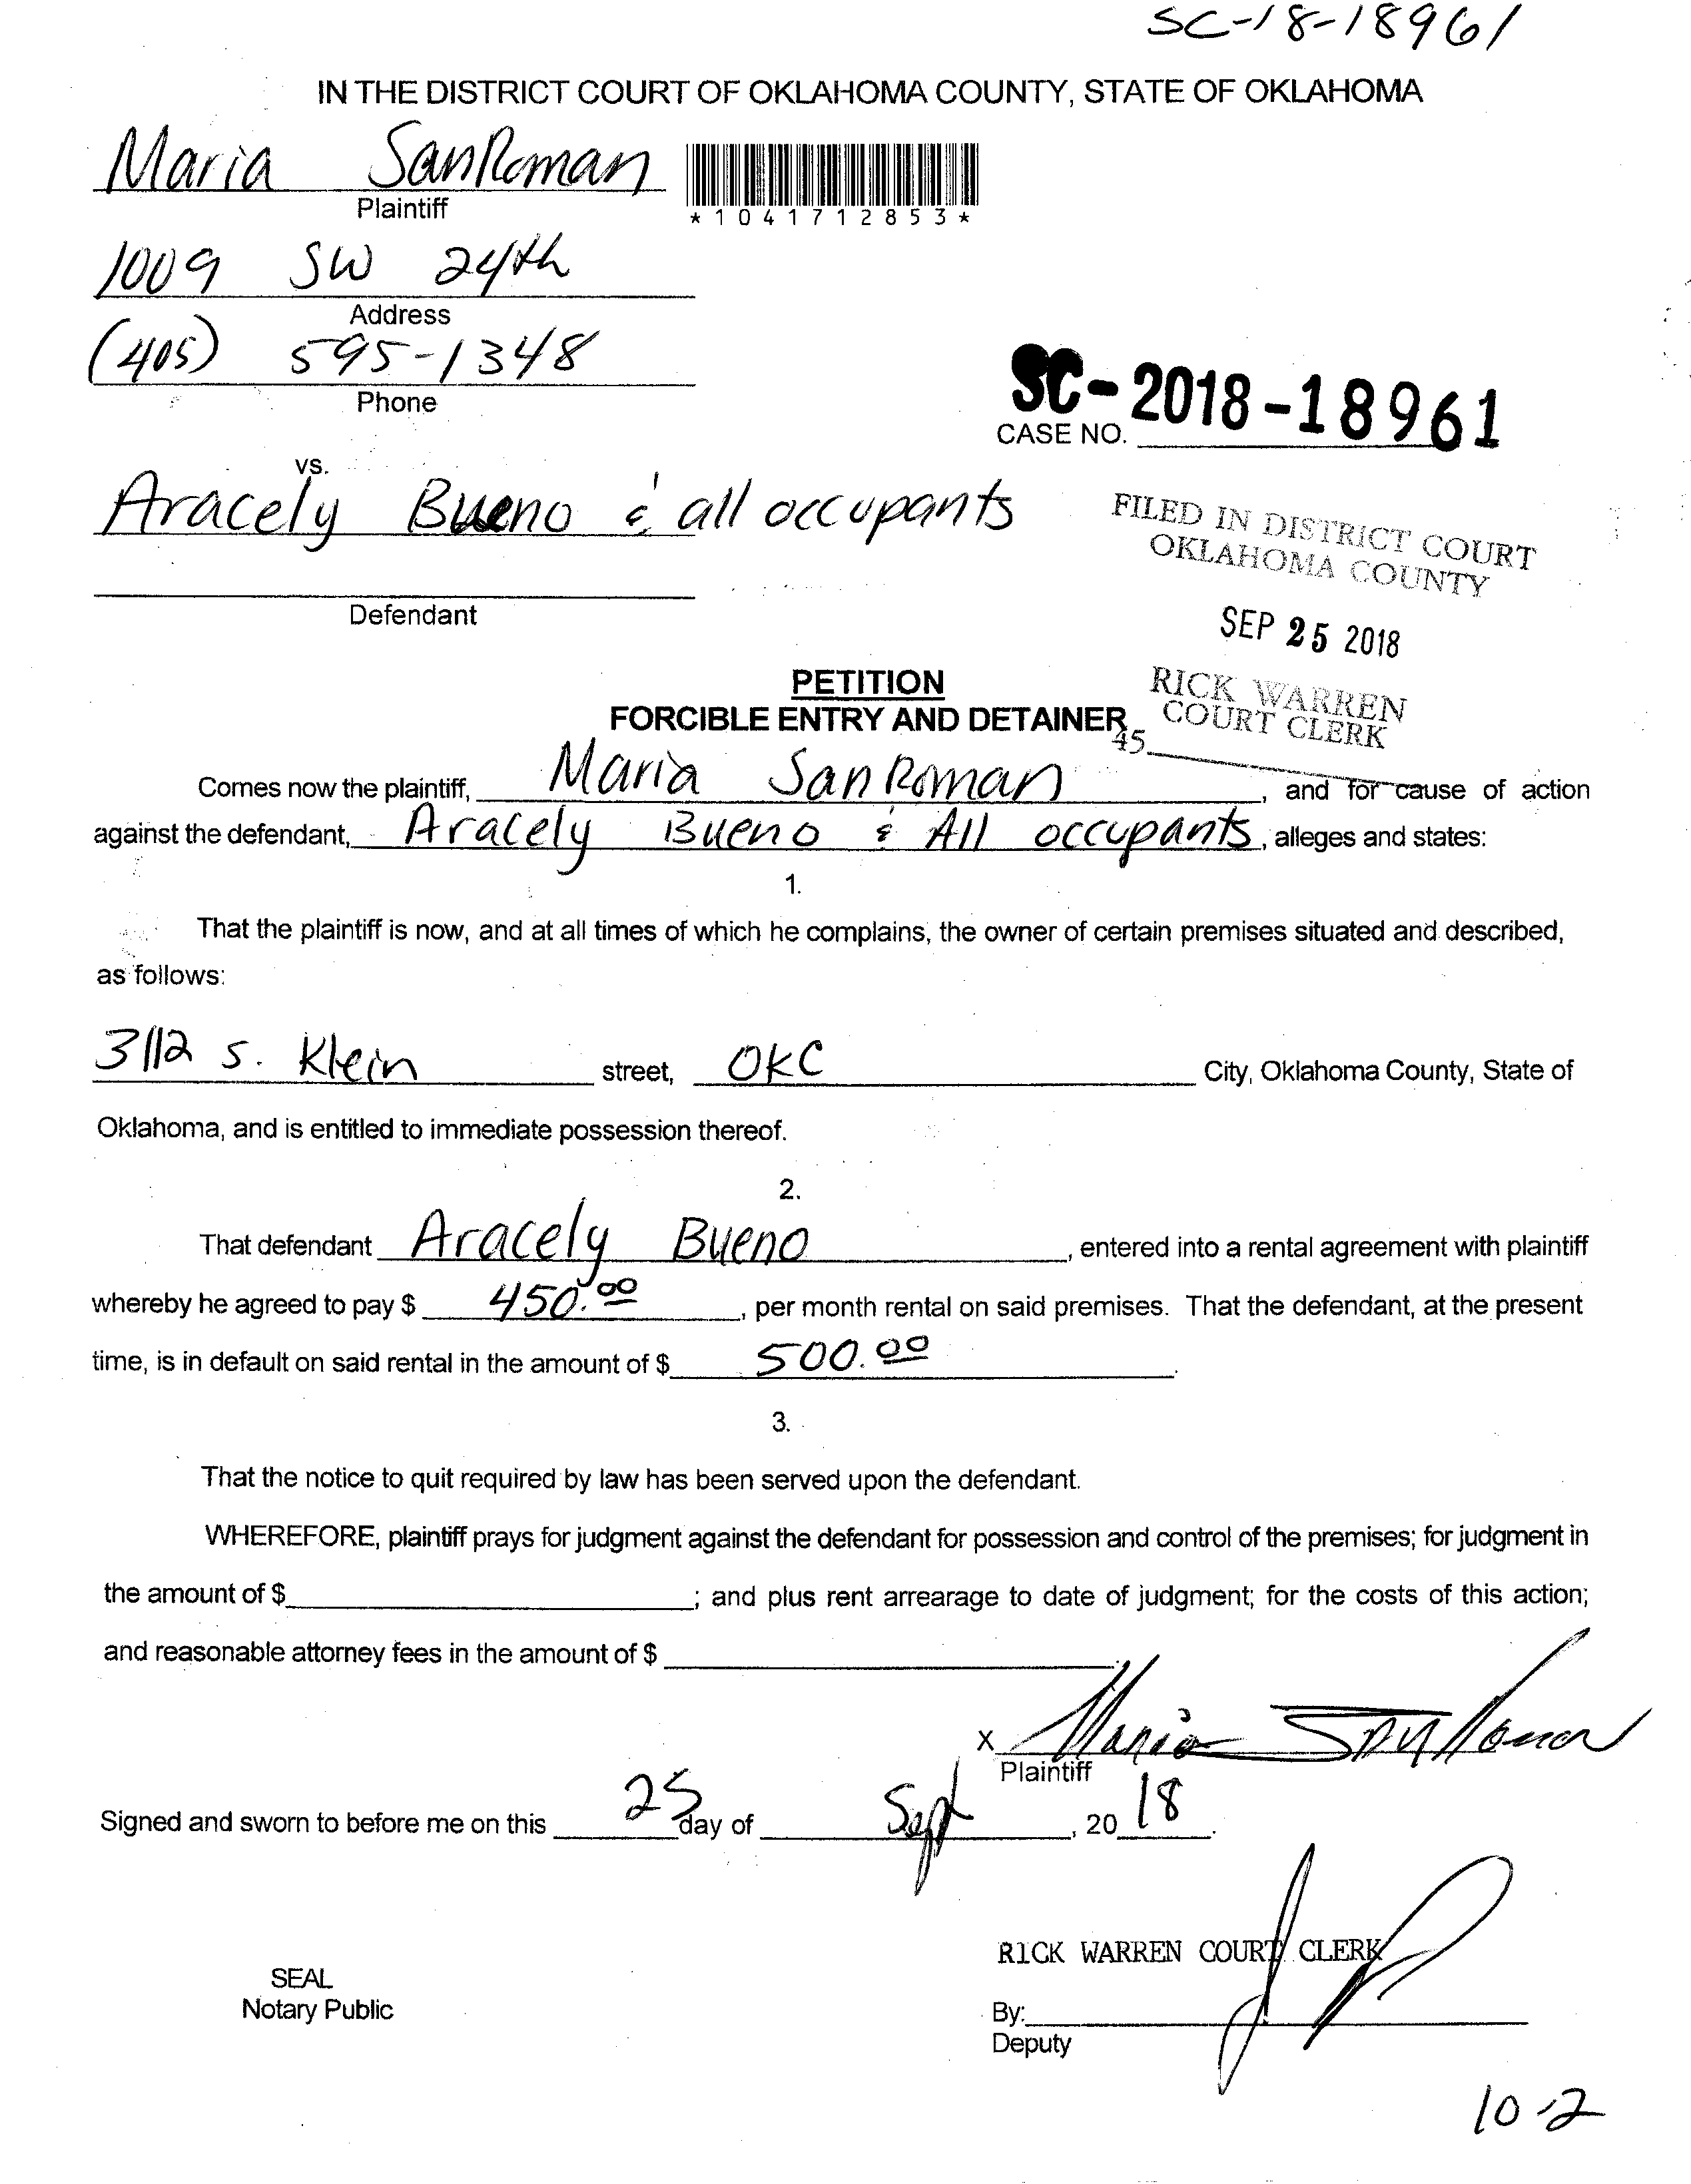 SC-18-18961
IN THE DISTRICT COURT OF OKLAHOMA COUNTY, STATE OF OKLAHOMA
Maria SanRoman
Plaintiff
*1041712853*
1009 SW 24th
Address
(405) 595-1348
Phone
SC-2018-18961
CASE NO.
vs.
Aracely Bueno & all occupants
Defendant
FILED IN DISTRICT COURT
OKLAHOMA COUNTY
SEP 25 2018
RICK WARREN
COURT CLERK
45
PETITION
FORCIBLE ENTRY AND DETAINER
Comes now the plaintiff, Maria SanRoman, and for cause of action
against the defendant, Aracely Bueno & All occupants, alleges and states:
1.
That the plaintiff is now, and at all times of which he complains, the owner of certain premises situated and described,
as follows:
3112 S. Klein street, OKC City, Oklahoma County, State of
Oklahoma, and is entitled to immediate possession thereof.
2.
That defendant Aracely Bueno, entered into a rental agreement with plaintiff
whereby he agreed to pay $ 450.00, per month rental on said premises. That the defendant, at the present
time, is in default on said rental in the amount of $ 500.00.
3.
That the notice to quit required by law has been served upon the defendant.
WHEREFORE, plaintiff prays for judgment against the defendant for possession and control of the premises; for judgment in
the amount of $; and plus rent arrearage to date of judgment; for the costs of this action;
and reasonable attorney fees in the amount of $.
X Maria SanRoman
Plaintiff
Signed and sworn to before me on this 25 day of Sept, 2018.
RICK WARREN COURT CLERK
SEAL
Notary Public
By:
Deputy
10-2